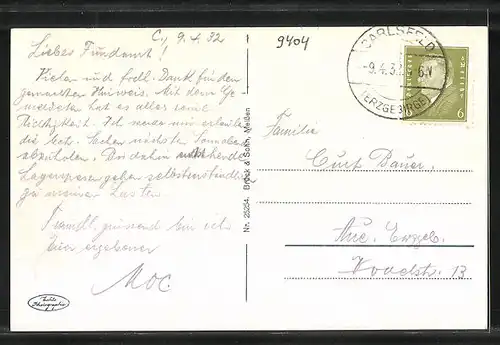 C., 9.4.32
Lieber Fundamt!
Vielen und frdl. Dank für den
gemachten Hinweis. Mit dem Ge-
meldeten hat es alles seine
Richtigkeit. Ich werde mir erlauben
die betr. Sachen nächsten Sonnabend
abzuholen. Bis dahin
Lagerspesen gehen selbstverständlich
zu meinen Lasten.
Freundl. grüssend bin ich
Euer ergebener
Moc.
Echte
Photographie
9404
CARLSFELD
-9.4.32
6-V
(ERZGEBIRGE)
6
6
Nr. 25254. Brück & Sohn, Meißen
Familie
Curt Bauer.
Aue. Erzgeb.
13